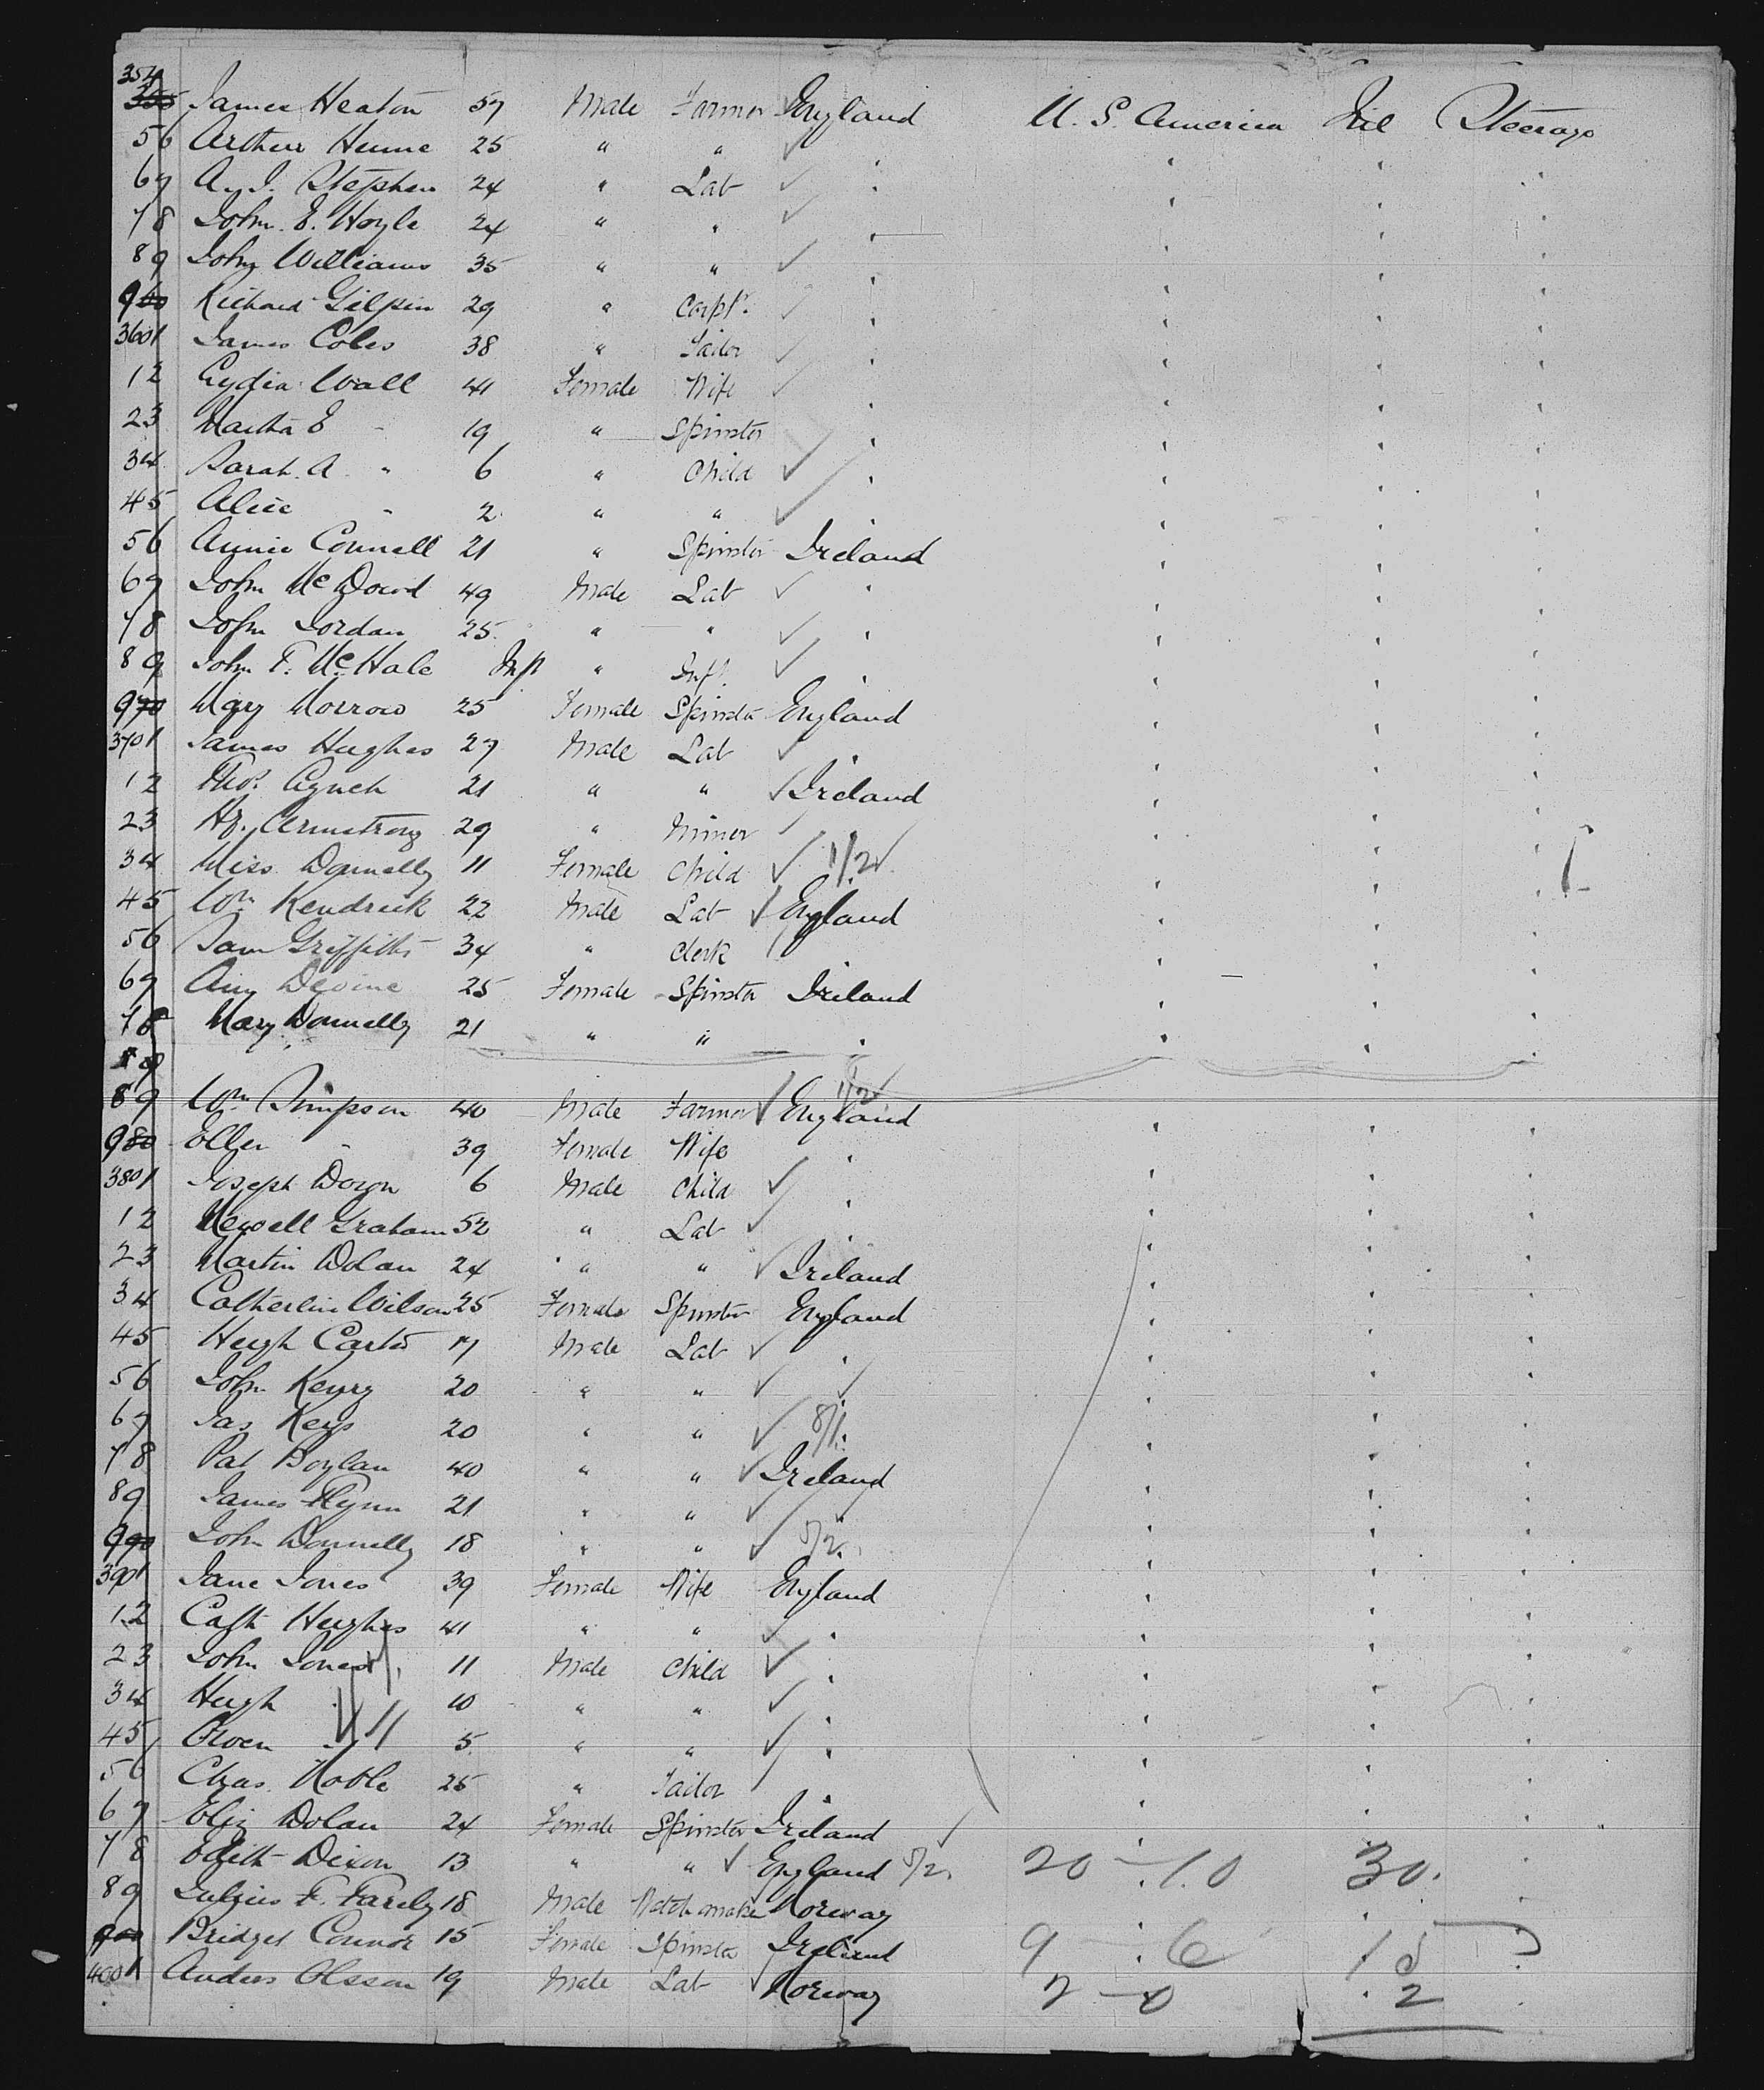 354
355 James Heaton 57 Male Farmer England U. S. America Nil Steerage
56 Arthur Hume 25 " "
67 A. J. Stephen 24 " Lab
78 John E. Hoyle 24 " "
89 John Williams 35 " "
960 Richard Gilpin 29 " Carptr.
3601 James Coles 38 " Tailor
12 Lydia Wall 41 Female Wife
23 Martha E " 19 " Spinster
34 Sarah A " 6 " Child
45 Alice " 2 " "
56 Annie Connell 21 " Spinster Ireland
67 John McDowd 49 Male Lab
78 John Jordan 25 " "
89 John F. McHale Inft " Inft.
970 Mary Morrow 25 Female Spinster England
3701 James Hughes 27 Male Lab
12 Thos. Lynch 21 " " Ireland
23 Hy. Armstrong 29 " Miner
34 Miss Donnelly 11 Female Child 1/2
45 Wm Kendrick 22 Male Lab England
56 Sam Griffiths 34 " Clerk
67 Amy Devine 25 Female Spinster Ireland
78 Mary Donnelly 21 " "
89
1/2
89 Wm Simpson 40 Male Farmer England
980 Ellen " 39 Female Wife
3801 Joseph Doxon 6 Male Child
12 Newell Graham 52 " Lab
23 Martin Dolan 24 " " Ireland
34 Catherine Wilson 25 Female Spinster England
45 Hugh Carter 17 Male Lab
56 John Kenry 20 " "
67 Jas Keys 20 " " 8/1
78 Pat Boylan 40 " " Ireland
89 James Flynn 21 " "
990 John Donnelly 18 " " 5/2
3901 Jane Jones 39 Female Wife England
12 Cath Hughes 41 " "
23 John Jones 11 Male Child
34 Hugh " 10 " "
45 Owen " 5 " "
56 Chas. Noble 25 " Tailor
67 Eliz Dolan 24 Female Spinster Ireland
78 Edith Dixon 13 " " England 5/2 20 - 10 30.
89 F. 18 Male Watchmaker Norway
900 Bridget Connor 15 Female Spinster Ireland 9 6 15
4001 Anders Olsson 19 Male Lab Norway 2 - 0 2